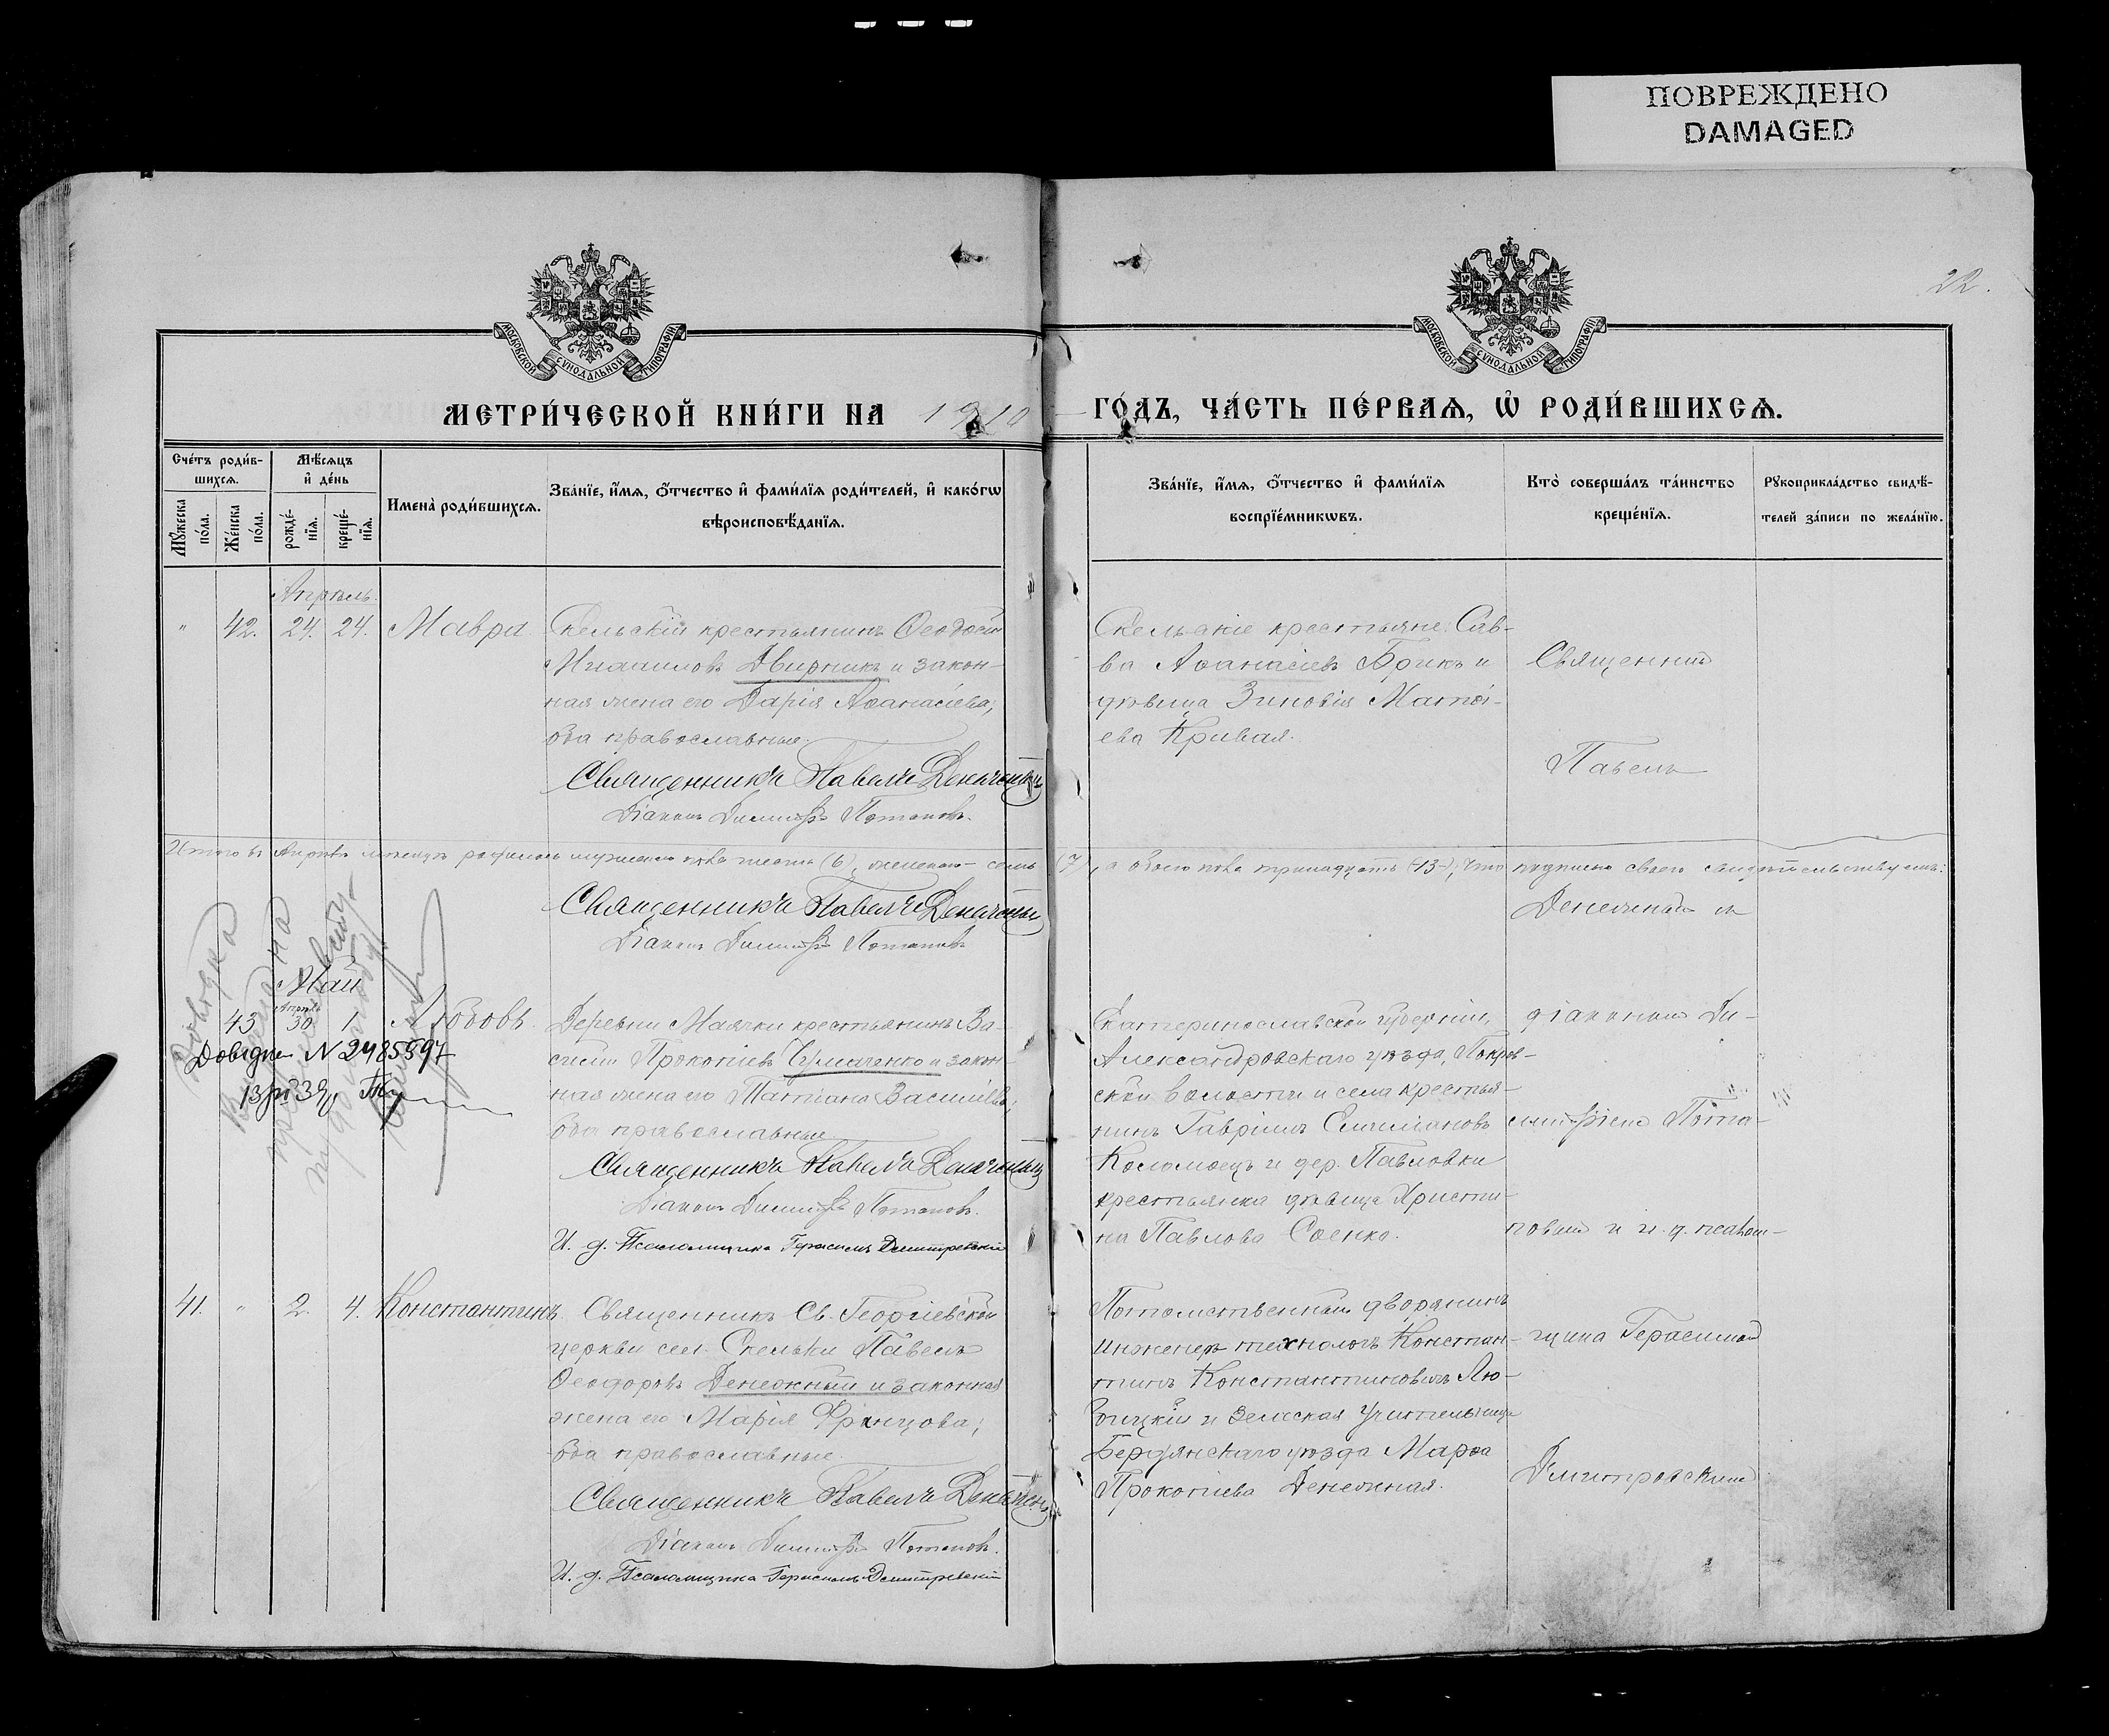 ПОВРЕЖДЕНО
DAMAGED
22.
МОСКОВСКОЙ СѴНОДАЛЬНОЙ ТИПОГРАФІИ
МОСКОВСКОЙ СѴНОДАЛЬНОЙ ТИПОГРАФІИ
МЕТРИ́ЧЕСКОЙ КНИ́ГИ НА 1910 ГО́ДЪ, ЧА́СТЬ ПЕ́РВАѦ, Ѡ҆ РОДИ́ВШИХСѦ.
Сче́тъ роди́в-
шихсѧ.
Мꙋ́жеска по́ла.
Же́нска по́ла.
Мѣ́сѧцъ
и҆ де́нь
рожде́-
нїѧ.
креще́-
нїѧ.
Имена̀ роди́вшихсѧ.
Зва́нїе, и҆́мѧ, ѻ҆́тчество и҆ фами́лїѧ роди́телей, и҆ како́гѡ
вѣроисповѣ́данїѧ.
Зва́нїе, и҆́мѧ, ѻ҆́тчество и҆ фами́лїѧ
воспрїе́мникѡвъ.
Кто̀ соверша́лъ та́инство
креще́нїѧ.
Рꙋкоприкла́дство свидѣ́-
телей за́писи по жела́нїю.
Апрѣль.
" 42. 24. 24. Мавра
Скельскій крестьянинъ Ѳеодосій
Дмирникъ и закон-
ная жена его Дарія Аѳанасіева;
оба православные.
Священникъ Павелъ Денежный
Діаконъ Димитрій Потаповъ.
Скельскіе крестьяне: Сав-
ва Аѳанасіевъ Брикъ и
дѣвица Зиновія Матѳі-
ева Кривая.
Священникъ
Павелъ
Итого въ Апрѣлѣ мѣсяцѣ родилось мужескаго пола шесть (6), женскаго - семь (7), а обоего пола тринадцать (13), что подписью своею свидѣтельствуемъ:
Священникъ Павелъ Денежный
Діаконъ Димитрій Потаповъ
Денежный и
Май
43 Апрѣль 30 1 Любовь.
Довідка
Довідка N 2485597
13/VI 39
Деревни Маячки крестьянинъ Ва-
силій Прокопіевъ Чумаченко и закон-
ная жена его Татіана Василіева;
оба православные
Священникъ Павелъ Денежный
Діаконъ Димитрій Потаповъ.
И. д. Псаломщика Герасимъ Дмитревскій
Екатеринославской губерніи,
Александровскаго уѣзда, Покров-
ской волости и села крестья-
нинъ Гавріилъ Емиліановъ
Коломоецъ и дер. Павловки
крестьянка дѣвица Христи-
на Павлова Соенко.
діакономъ Ди-
митріемъ Пота-
повымъ и и. д. псалом-
щика Герасимомъ
Дмитровскимъ
41. " 2. 4. Константинъ.
Священникъ Св. Георгіевской
церкви сел. Скельки Павелъ
Ѳеодоровъ Денежный и законная
жена его Марія Францова;
оба православные.
Священникъ Павелъ Денежный
Діаконъ Димитрій Потаповъ.
И. д. Псаломщика Герасимъ Дмитревскій
Потомственный дворянинъ
инженеръ технологъ Констан-
тинъ Константиновичъ Лю-
бицкій и земская учительница
Бердянскаго уѣзда Марѳа
Прокопіева Денежная.